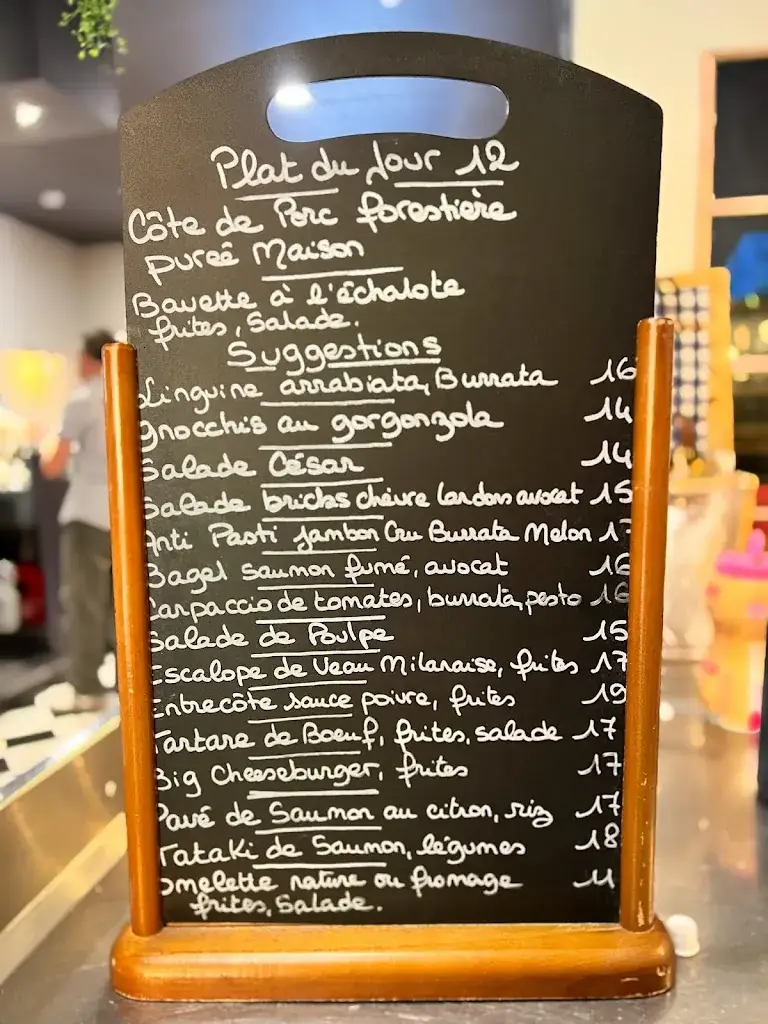 Plat du Jour 12
Côte de Porc forestière
pureé Maison
Bavette à l'échalote
frites, Salade.
Suggestions
Linguine arrabiata, Burrata 16
gnocchis au gorgonzola 14
Salade César 14
Salade bricks chèvre lardons avocat 15
Anti Pasti jambon Cru Burrata Melon 17
Bagel saumon fumé, avocat 16
Carpaccio de tomates, burrata, pesto 16
Salade de Poulpe 15
Escalope de Veau Milanaise, frites 17
Entrecôte sauce poivre, frites 19
Tartare de Boeuf, frites, salade 17
Big Cheeseburger, frites 17
Pavé de Saumon au citron, riz 17
Tataki de Saumon, légumes 18
Omelette nature ou fromage 11
frites, Salade.